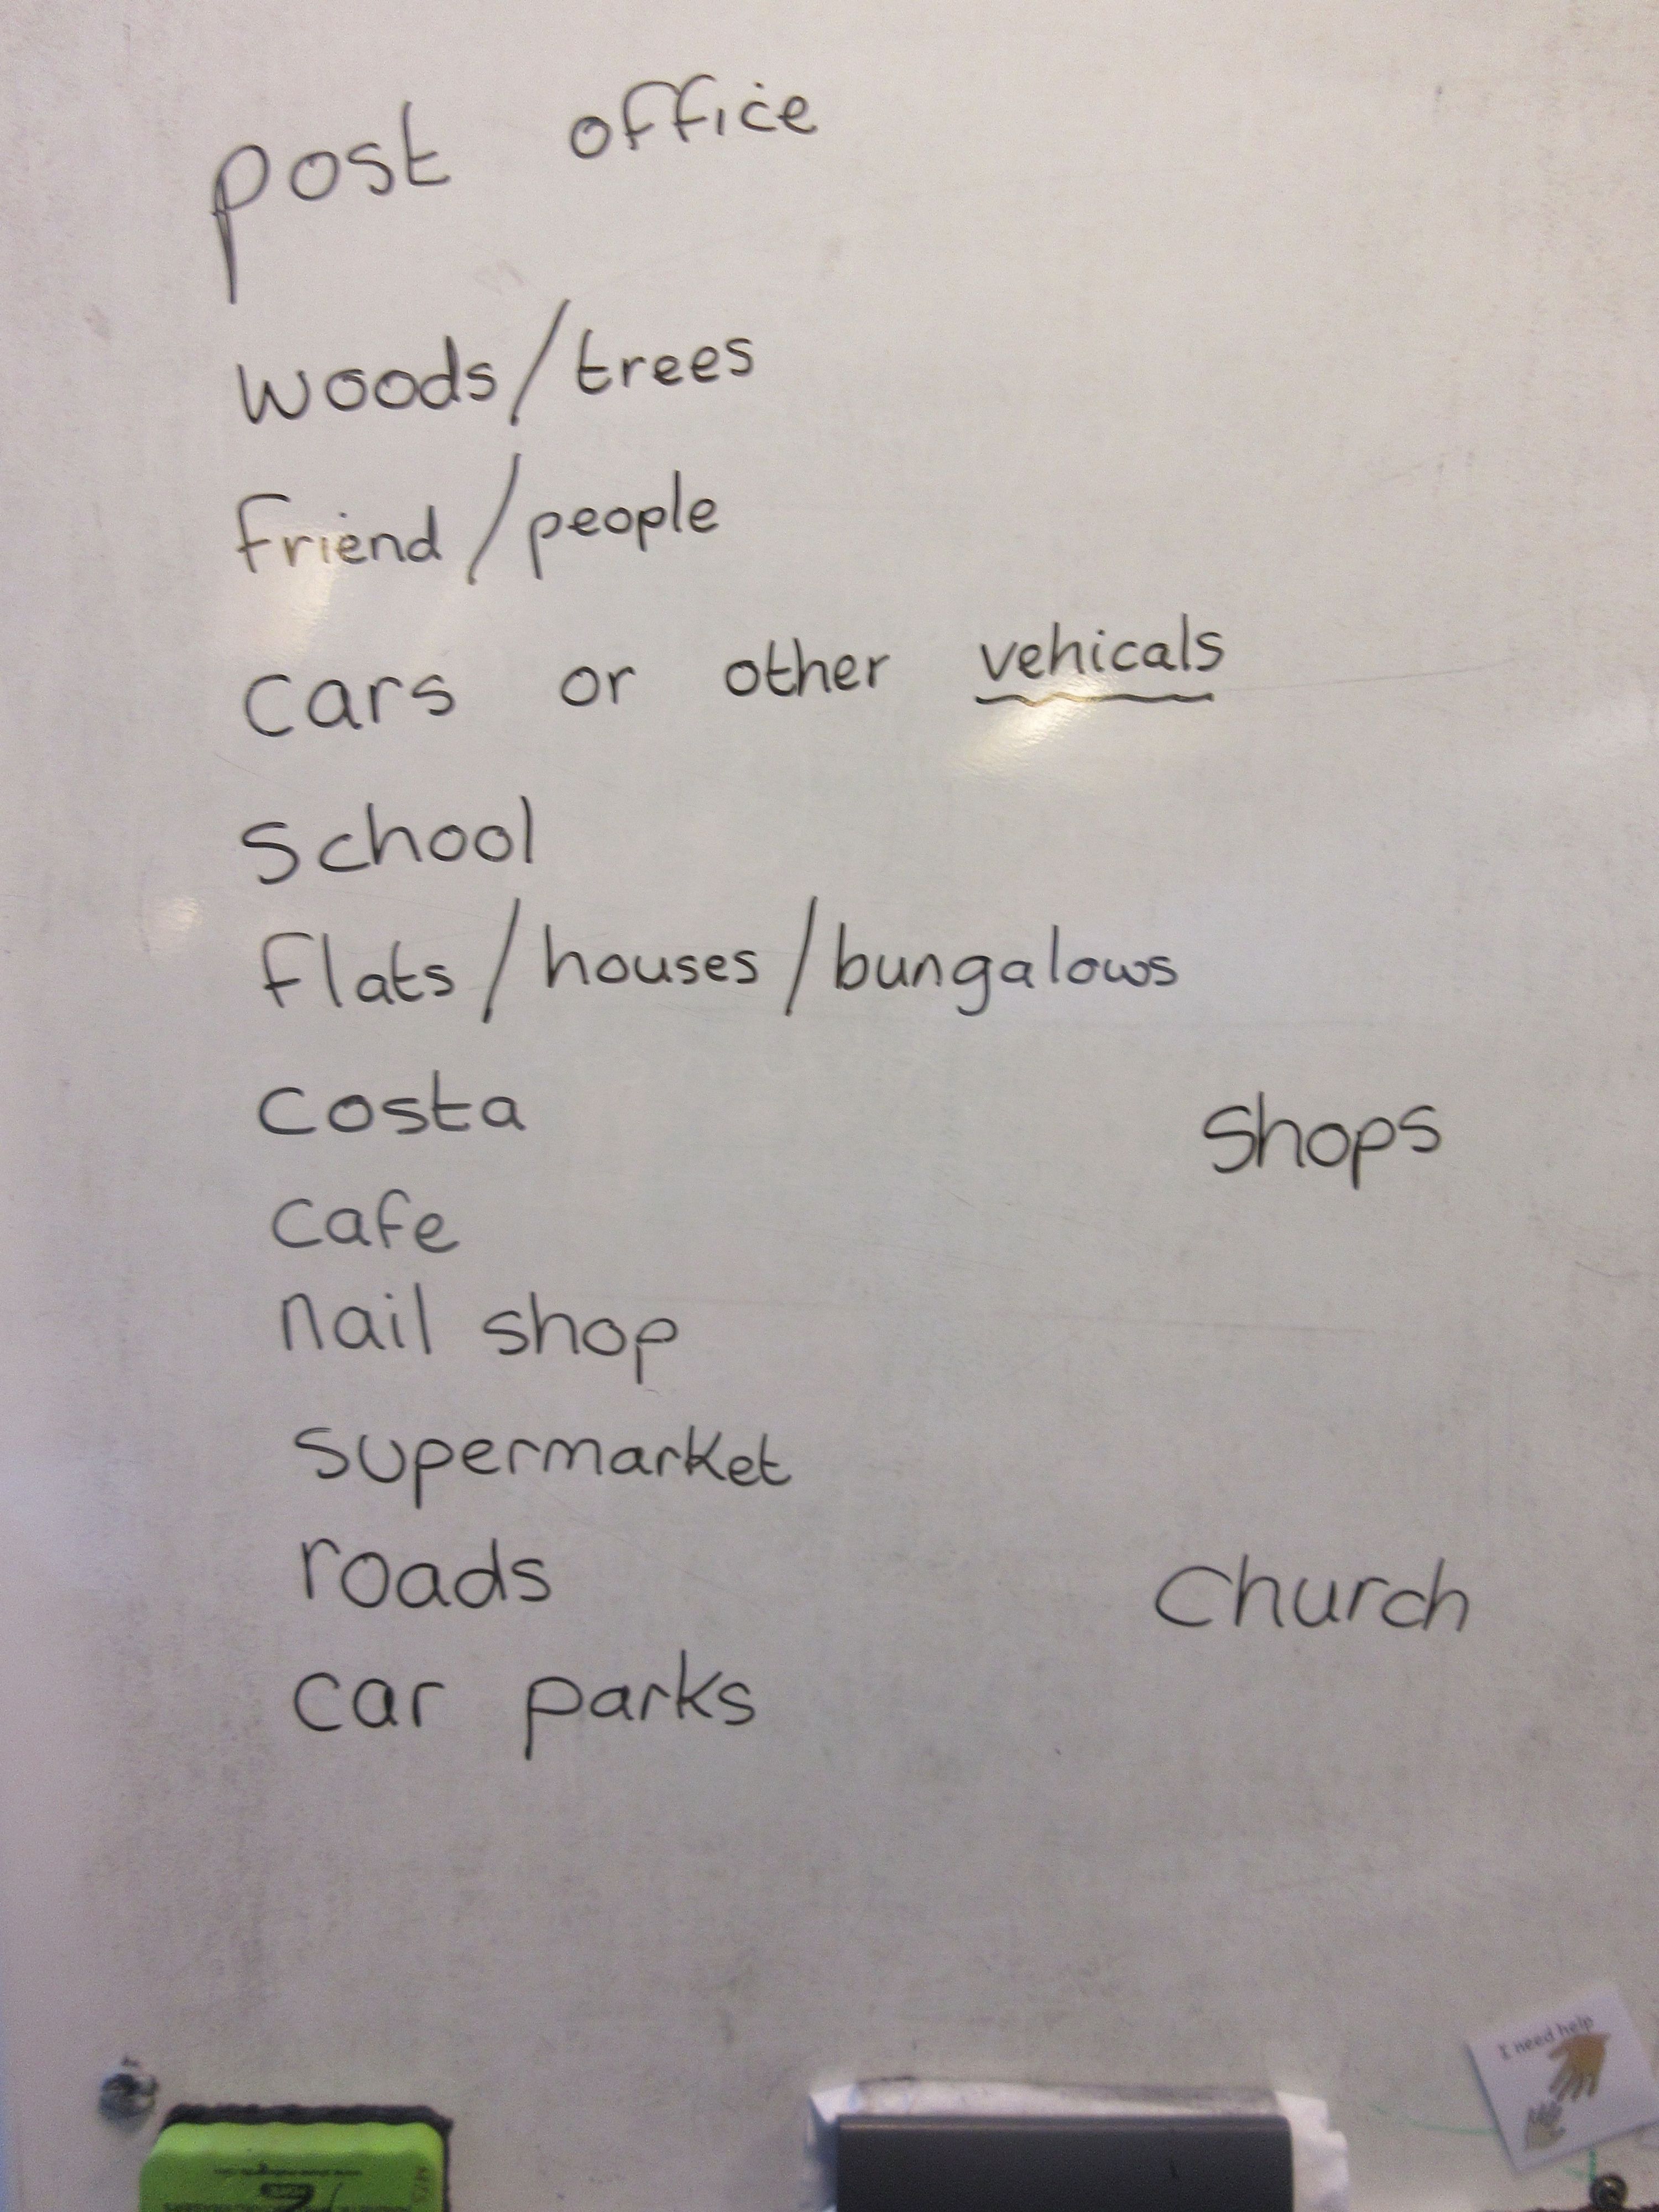 post office
woods/trees
friend/people
cars or other vehicals
school
flats/houses/bungalows
costa
shops
cafe
nail shop
supermarket
roads
church
car parks
I need help